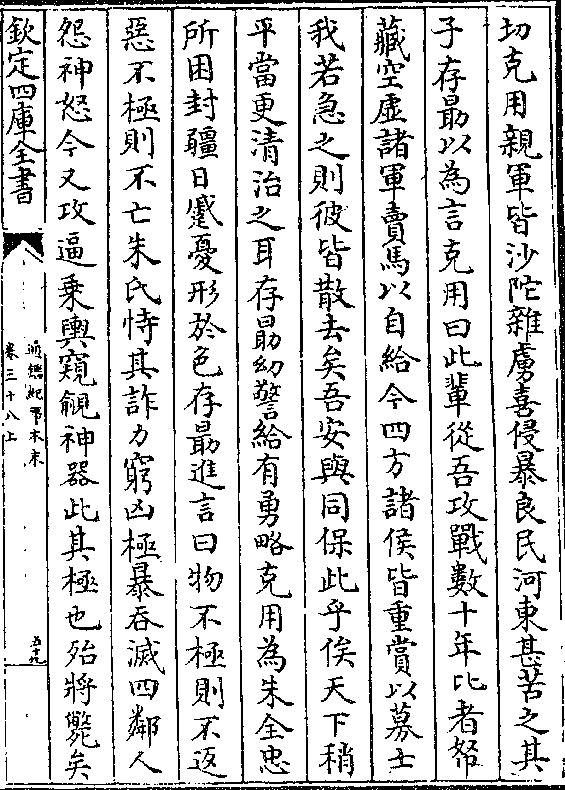 切克用親軍皆沙陀雜虜喜侵暴良民河東甚苦之其
子存勗以為言克用曰此輩從吾攻戰數十年比者帑
藏空虛諸軍賣馬以自給今四方諸侯皆重賞以募士
我若急之則彼皆散去矣吾安與同保此乎俟天下稍
平當更清治之耳存勗幼警給有勇略克用為朱全忠
所困封疆日蹙憂形於色存勗進言曰物不極則不返
惡不極則不亡朱氏恃其詐力窮凶極暴吞滅四鄰人
怨神怒今又攻逼乗輿窺覦神器此其極也殆將斃矣
欽定四庫全書
通鑑紀事本末
卷三十八上
五十九